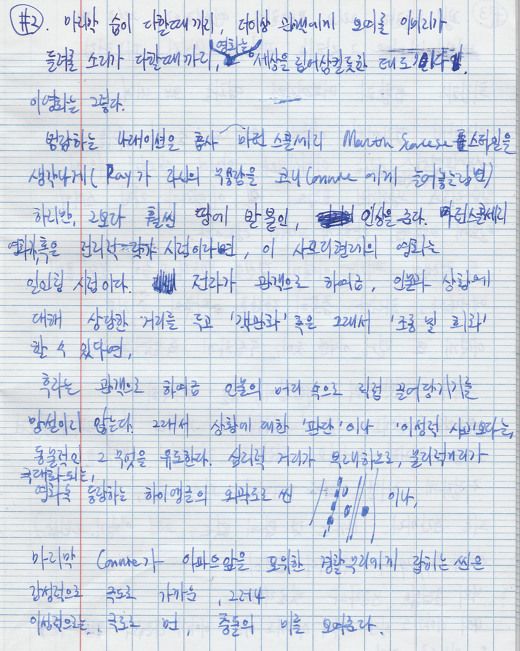 #2. 마지막 숨이 다할때까지, 더이상 관객에게 보여줄 이미지가
들려줄 소리가 다할때까지, 영화는 세상을 집어삼킬듯한 태도
이 영화는 그렇다.
범람하는 나레이션은 흡사 마틴 스콜세지 Martin Scorsese 스타일을
생각나게 (Ray가 자신의 무용담을 코니 Connie 에게 늘어놓는 장면)
하지만, 그보다 훨씬 땅에 발붙인, 인상을 준다. 마틴스콜세지
영화가, 혹은 전지적 작가 시점이라면, 이 사프디형제의 영화는
일인칭 시점이다. 전자가 관객으로 하여금, 인물과 상황에
대해 상당한 거리를 두고 '객관화' 혹은 그래서 '조롱 및 희화'
할 수 있다면,
후자는 관객으로 하여금 인물의 머리 속으로 직접 끌어당기기를
망설이지 않는다. 그래서 상황에 대한 '판단'이나 '이성적 사고'보다는,
동물적인 그 무엇을 유도한다. 심리적 거리가 부재하므로, 물리적거리가
극대화되는,
영화를 통괄하는 하이앵글의 외곽도로 씬 이나,
마지막 Connie가 아파트앞을 포위한 경찰무리에게 잡히는 씬은
감성적으로 극도로 가까운, 그러나
이성적으로는, 극도로 먼, 충돌의 미를 보여준다.